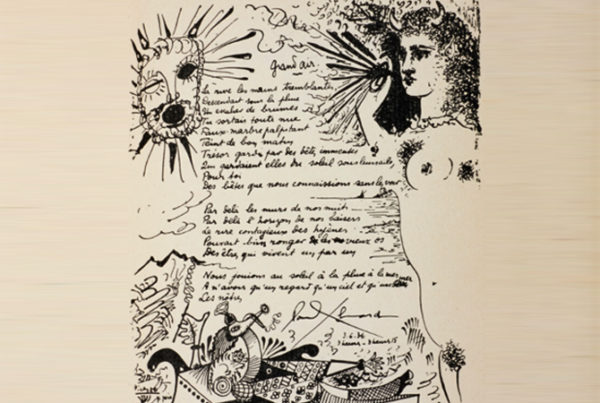 Grand air
La rive les mains tremblantes
Descendait sous la pluie
Un escalier de brumes
Tu sortais toute nue
Faux marbre palpitant
Teint de bon matin
Trésor gardé par des bêtes immenses
Qui gardaient elles du soleil sous leurs ailes
Pour toi
Des bêtes que nous connaissions sans les voir
Par delà les murs de nos nuits
Par delà l'horizon de nos baisers
Le rire contagieux des hyènes
Pouvait bien ronger les vieux os
Des êtres qui vivent un par un
Nous jouions au soleil à la pluie à la mer
A n'avoir qu'un regard qu'un ciel et qu'une mer
Les nôtres
Paul Eluard
3.6.36